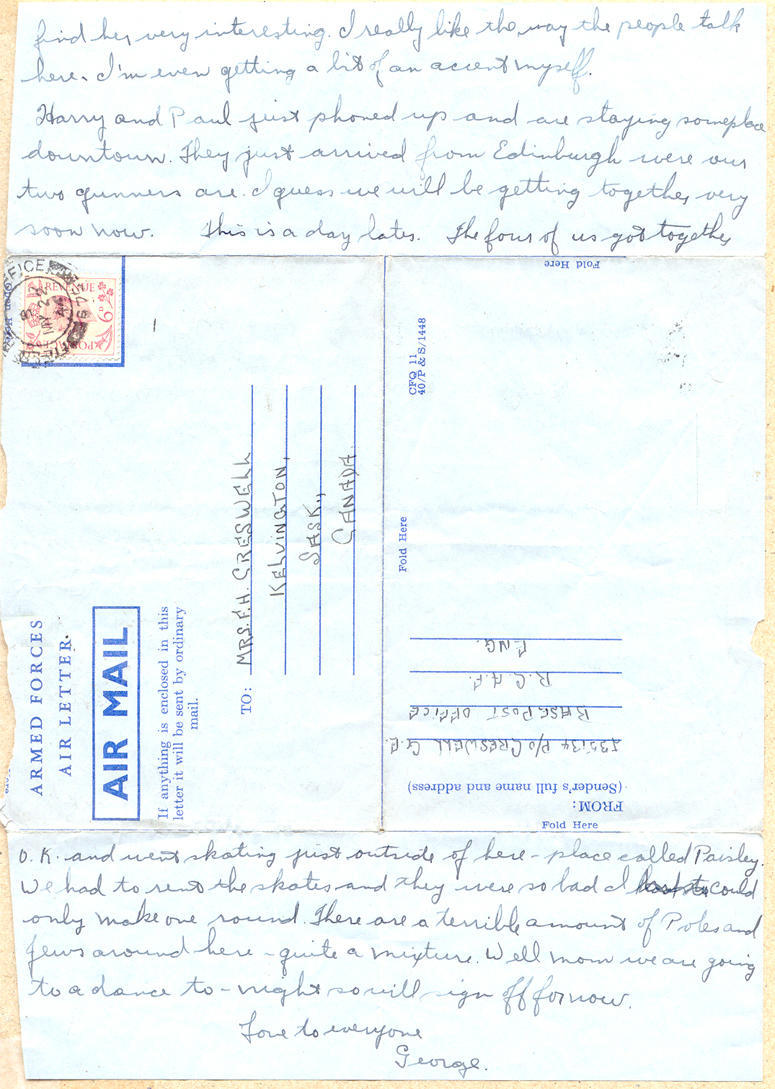 find her very interesting. I really like the way the people talk
here. I'm even getting a bit of an accent myself.
Harry and Paul just phoned up and are staying someplace
downtown. They just arrived from Edinburgh were our
two gunners are. I guess we will be getting together very
soon now. This is a day later. The four of us got together
REVENUE
9D
ARMED FORCES
AIR LETTER.
AIR MAIL
If anything is enclosed in this
letter it will be sent by ordinary
mail.
TO:
MRS. F.H. CRESWELL
KELVINGTON,
SASK.,
CANADA.
Fold Here
CFQ 11
40/P & S/1448
Fold Here
Fold Here
FROM:
(Sender's full name and address)
J35134 P/O CRESWELL G.E.
BASE POST OFFICE
R.C.A.F.
ENG.
O.K. and went skating just outside of here - place called Paisley.
We had to rent the skates and they were so bad I could
only make one round. There are a terrible amount of Poles and
Jews around here - quite a mixture. Well mom we are going
to a dance to-night so will sign off for now.
Love to everyone
George.